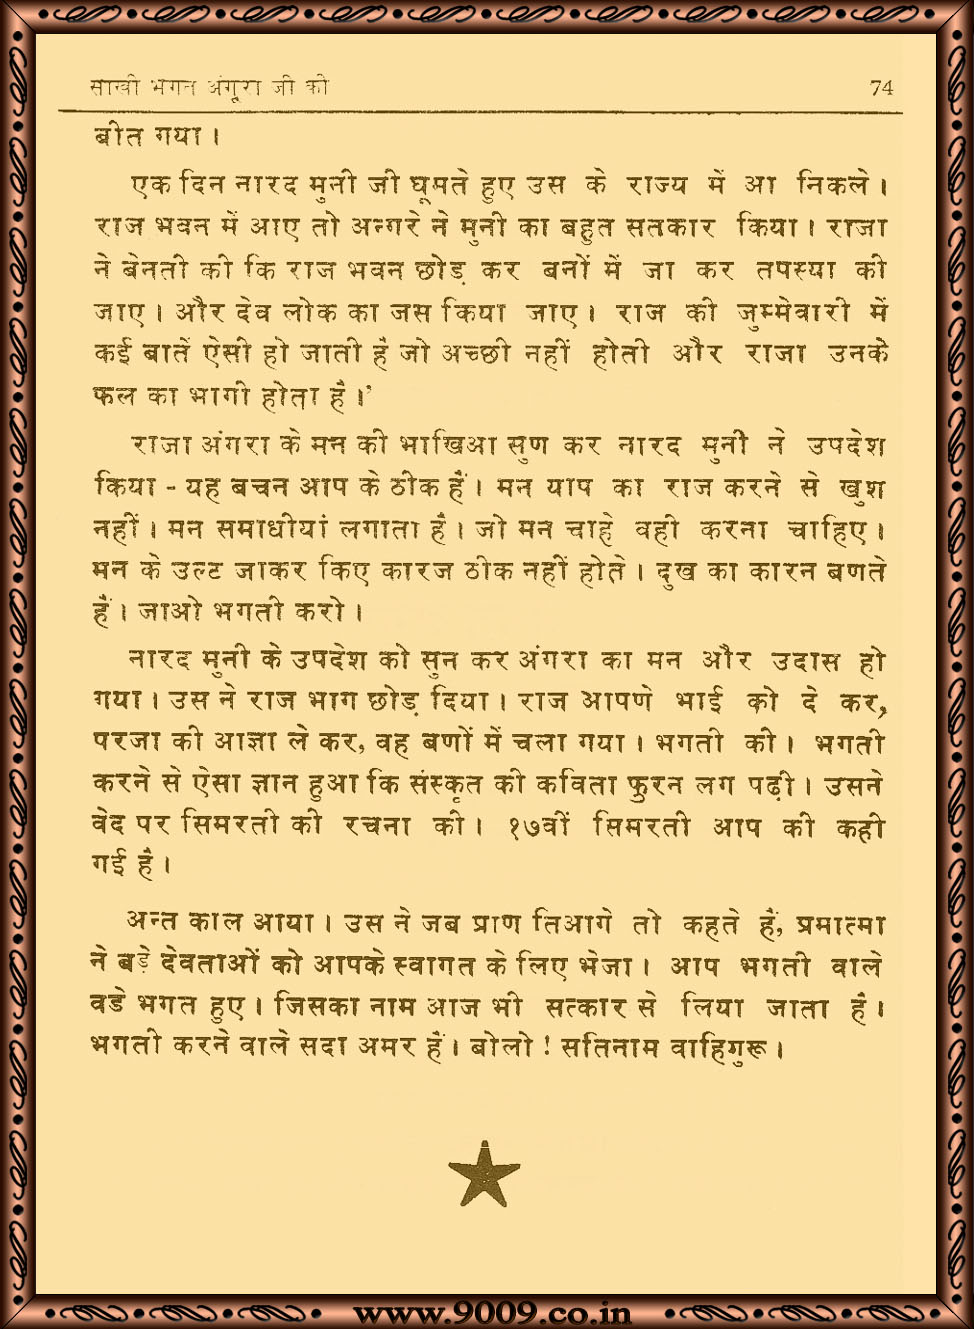 साखी भगत अंगूरा जी की 74
बीत गया।
एक दिन नारद मुनी जी घूमते हुए उस के राज्य में आ निकले।
राज भवन में आए तो अन्गरे ने मुनी का बहुत सतकार किया। राजा
ने बेनती की कि राज भवन छोड़ कर बनों में जा कर तपस्या की
जाए। और देव लोक का जस किया जाए। राज की जुम्मेवारी में
कई बातें ऐसी हो जाती हैं जो अच्छी नहीं होती और राजा उनके
फल का भागी होता है।'
राजा अंगरा के मन की भाखिआ सुण कर नारद मुनी ने उपदेश
किया - यह बचन आप के ठीक हैं। मन याप का राज करने से खुश
नहीं। मन समाधीयां लगाता है। जो मन चाहे वही करना चाहिए।
मन के उल्ट जाकर किए कारज ठीक नहीं होते। दुख का कारन बणते
हैं। जाओ भगती करो।
नारद मुनी के उपदेश को सुन कर अंगरा का मन और उदास हो
गया। उस ने राज भाग छोड़ दिया। राज आपणे भाई को दे कर,
परजा की आज्ञा ले कर, वह बणों में चला गया। भगती की। भगती
करने से ऐसा ज्ञान हुआ कि संस्कृत की कविता फुरन लग पढ़ी। उसने
वेद पर सिमरती की रचना की। १७वीं सिमरती आप की कही
गई है।
अन्त काल आया। उस ने जब प्राण तिआगे तो कहते हैं, प्रमात्मा
ने बड़े देवताओं को आपके स्वागत के लिए भेजा। आप भगती वाले
वडे भगत हुए। जिसका नाम आज भी सत्कार से लिया जाता है।
भगती करने वाले सदा अमर हैं। बोलो ! सतिनाम वाहिगुरू।
www.9009.co.in